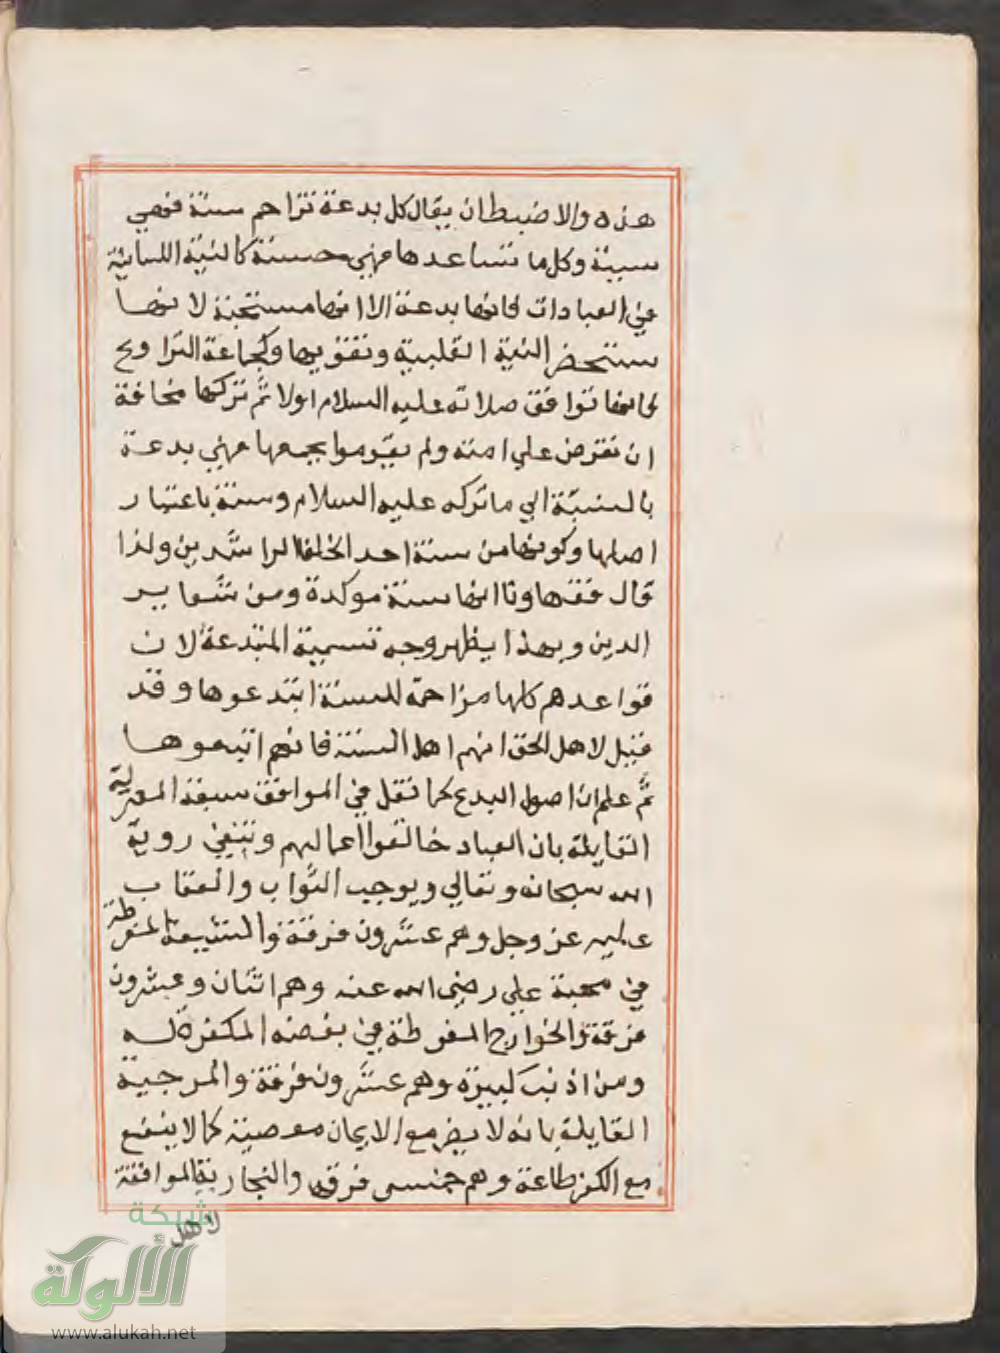 هذه والاضبطان يقال كل بدعة تزاحم سنة فهي
سيئة وكل ما تساعدها فهي حسنة كالنية اللسانية
في العبادات فانها بدعة الا انها مستحبة لانها
تستحضر النية القلبية وتقويها وكجماعة التراويح
فانها توافق صلاته عليه السلام اولا ثم تركها مخافة
ان تفترض علي امته ولم يقوموا بجمعها فهي بدعة
بالنسبة الي ما تركه عليه السلام وسنة باعتبار
اصلها وكونها من سنة احد الخلفا الراشدين ولذا
قال فقهاونا انها سنة موكدة ومن شعاير
الدين وبهذا يظهر وجه تسمية المبتدعة لان
قواعدهم كلها مزاحمة للسنة ابتدعوها وقد
قيل لاهل الحق انهم اهل السنة فانهم اتبعوها
ثم علم ان اصول البدع كما نقل في المواقف سبعة المعتزلة
القايلة بان العباد خالقوا اعمالهم وبنفي روية
الله سبحانه وتعالي وبوجوب الثواب والعقاب
عليه عز وجل وهم عشرون فرقة والشيعة المفرطة
في محبة علي رضي الله عنه وهم اثنان وعشرون
فرقة والخوارج المفرطة في بغضه المكفرة له
ومن اذنب كبيرة وهم عشرون فرقة والمرجية
القايلة بانه لا يضر مع الايمان معصية كما لا ينفع
مع الكفر طاعة وهم خمس فرق والنجارية الموافقة
لاهل
شبكة
الألوكة
www.alukah.net